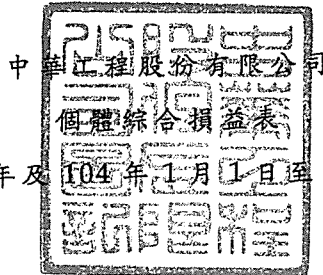 中華工程股份有限公司
個體綜合損益表
年及 104 年 1 月 1 日至